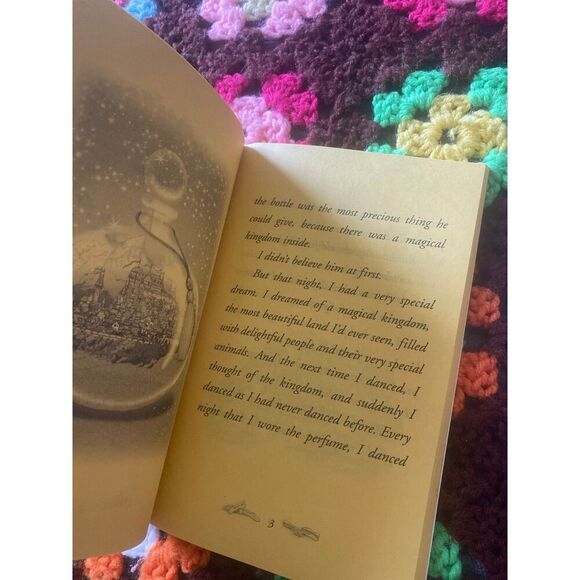 the bottle was the most precious thing he
could give, because there was a magical
kingdom inside.
I didn't believe him at first.
But that night, I had a very special
dream. I dreamed of a magical kingdom,
the most beautiful land I'd ever seen, filled
with delightful people and their very special
animals. And the next time I danced, I
thought of the kingdom, and suddenly I
danced as I had never danced before. Every
night that I wore the perfume, I danced
3